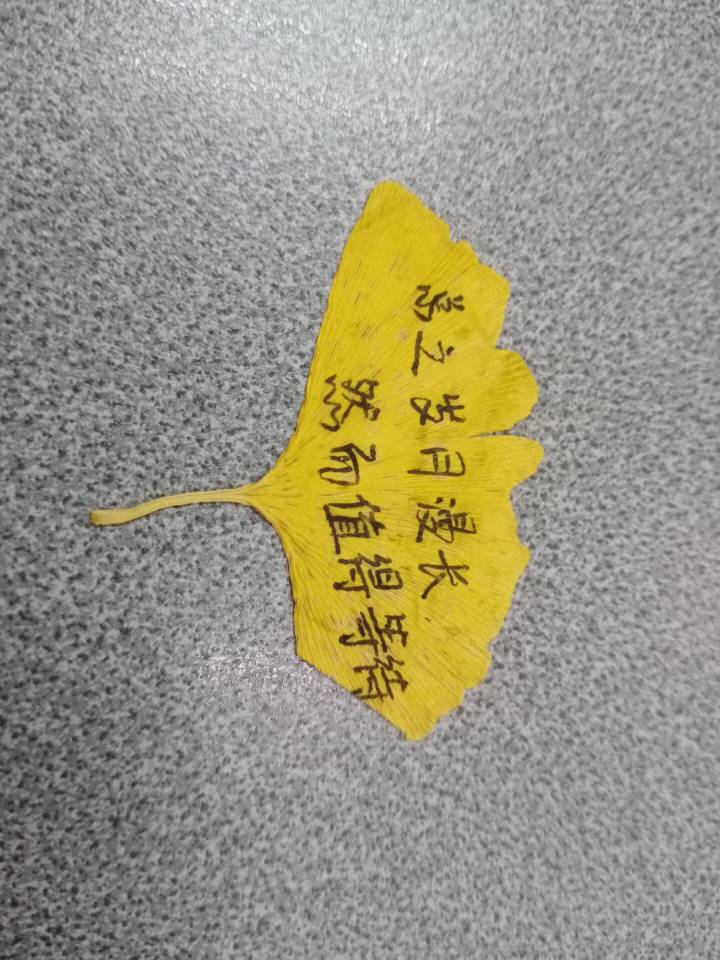 立岁月漫长
然而值得等待